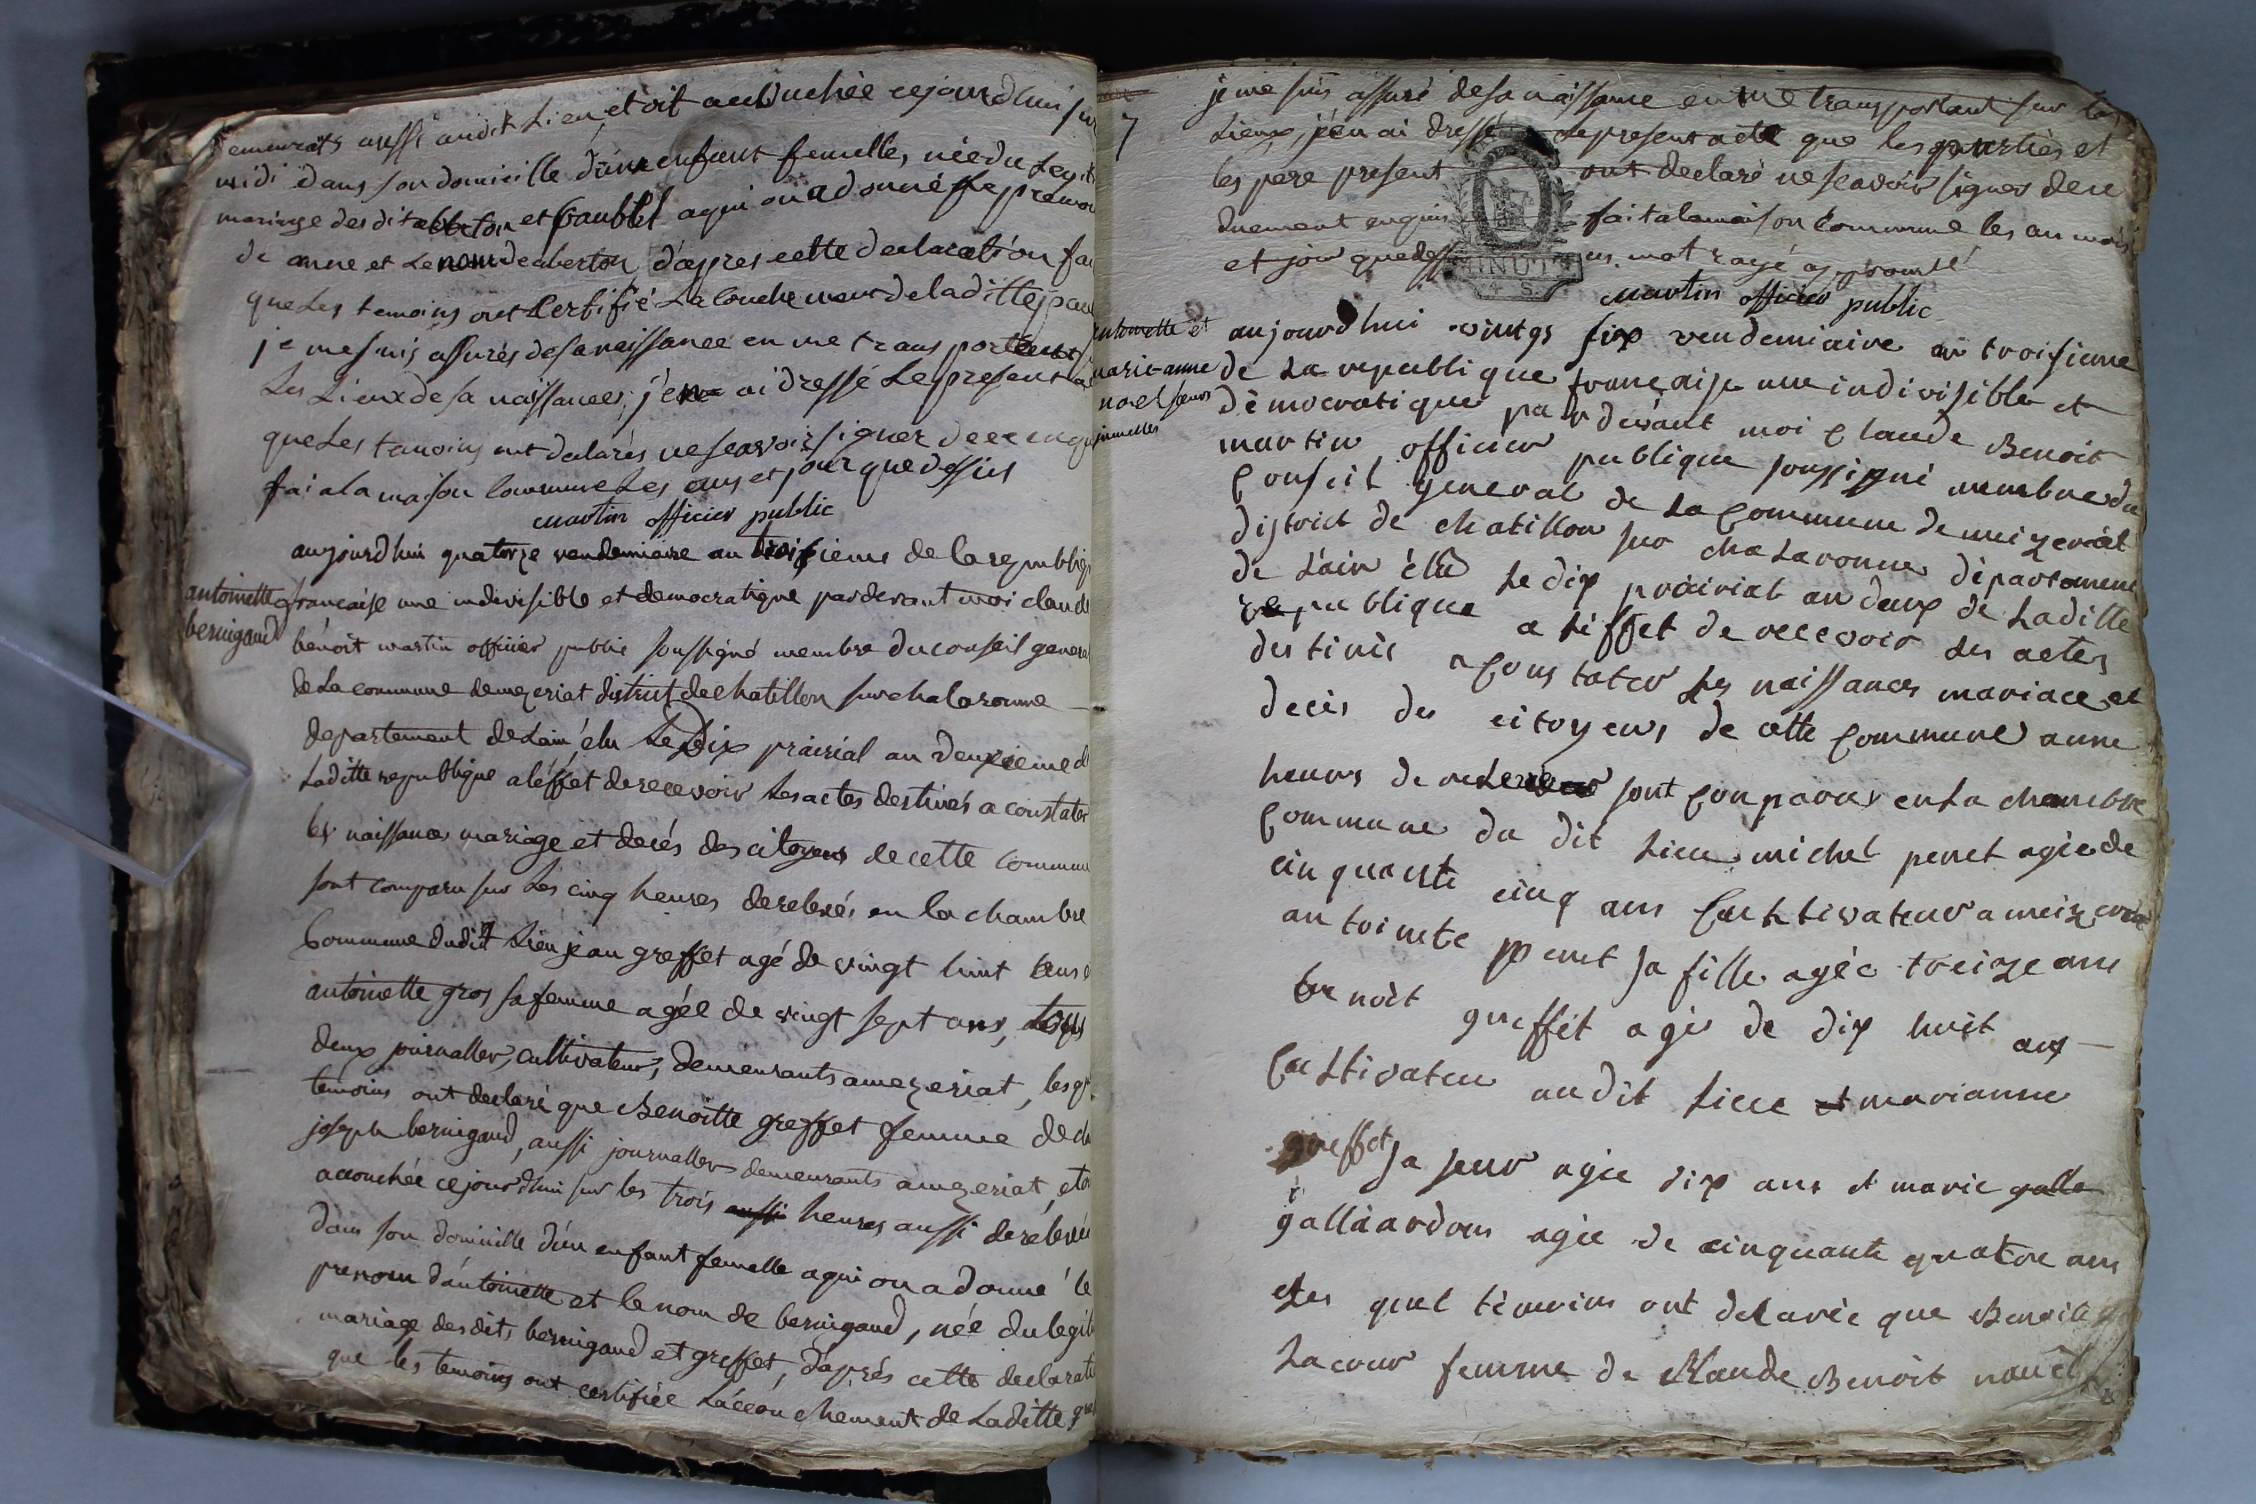 demeurants aussi audit Lieu etoit accouchée cejourdhui sur
midi dans son domicille d'une enfant femelle, née du Legiti
mariage des dits et paublet a qui on a donné le prenom
de anne et Le nom de aberton d'apres cette declaration fai
que Les temoins ont Certifié La couche de laditte pau
je me suis assurés de sa naissance en me transportent
Les Lieux de sa naissance, j'en ai dressé Le present a
que Les temoins ont declarés ne scavoir signer de ce enqui
fai a la maison Commune Les ans et jour que dessus
martin officier public
aujourdhui quatorze vendemiaire an troisieme de la republiq
antoinette
bernigaud
francaise une indivisible et democratique pardevant moi claude
benoit martin officier public soussigné membre du conseil genera
de La commune demezeriat district de chatillon sur chalaronne
departement de Lain, élu Le Dix prairial an deuxieme de
Laditte republique a léffet de recevoir Les actes destinés a constater
les naissances mariage et decés des citoyens de cette commune
sont comparu sur Les cinq heures de relevés en la chambre
Commune dudit Lieu jean greffet agé de vingt huit ans e
antoinette gros sa femme agée de vingt sept ans, tous
deux journallier, cultivateurs, demeurants amezeriat, les q
temoins ont declaré que Benoitte greffet femme de
joseph bernigaud, aussi journallier demeurants a mezeriat, eto
accouchée cejourdhui sur les trois aussi heures aussi de relevée
dans son domicille d'un enfant femelle a qui on a donné le
prenom d'antoinette et le nom de bernigaud, née du legiti
mariage desdits bernigaud et greffet, d'aprés cette declarati
que les temoins ont certifiée L'accouchement de Laditte gre
7
je me suis assuré de sa naissance en me transportant sur les
Lieux, j'en ai dressé Le present acte que les parties et
les pere present ont declaré ne scavoir signer de ce
duement enquis fait a la maison Commune les an mois
et jour que dessus mot rayé approuvé
MINUT
4 S.
martin officier public
antoinette et
marie-anne
noel sœurs
jumelles
aujourdhui vingt six vendemiaire an troisieme
de La republique francaise une indivisible et
démocratique par devant moi Claude Benoit
martin officier publique soussigné membre du
Conseil general de La Commune de meizeriat
district de chatillon sur chalaronne département
de L'ain élu Le dix prairial an deux de Laditte
republique a L'effet de recevoir Les actes
destinés a Constater Les naissances mariace et
decès des citoyens de cette Commune a une
heures de sont Comparus en La chambre
Commune du dit Lieu michel penet agée de
cinquante cinq ans Cultivateur a meizeriat
antoinete penet sa fille agée treize ans
benoit greffet agés de dix huit ans
Cultivateu audit Lieu et marianne
greffet sa seur agée dix ans et marie galla
gallaardons agée de cinquante quatre ans
Les quel temoins ont delarée que Benoite
Lacour femme de Claude Benoit nouël